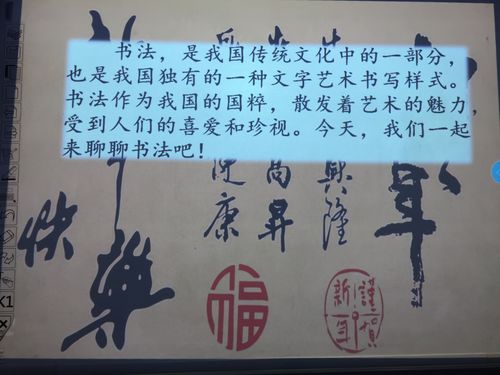 书法，是我国传统文化中的一部分，
也是我国独有的一种文字艺术书写样式。
书法作为我国的国粹，散发着艺术的魅力，
受到人们的喜爱和珍视。今天，我们一起
来聊聊书法吧！
年
兴隆
高昇
康
乐
快
福
谨賀
新年
X1